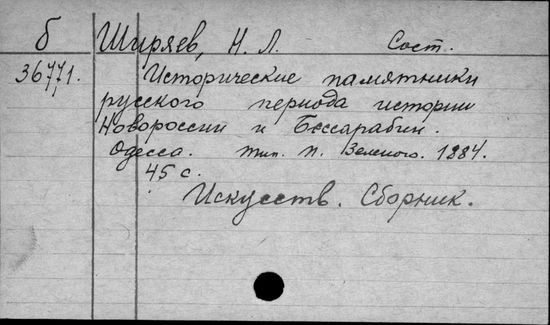 б Ширяев, Н. Л. Сост.
36771. Исторические памятники
русского периода истории
Новороссии и Бессарабии.
Одесса. тип. П. Зеленого. 1884.
45 с.
Искусств. Сборник.